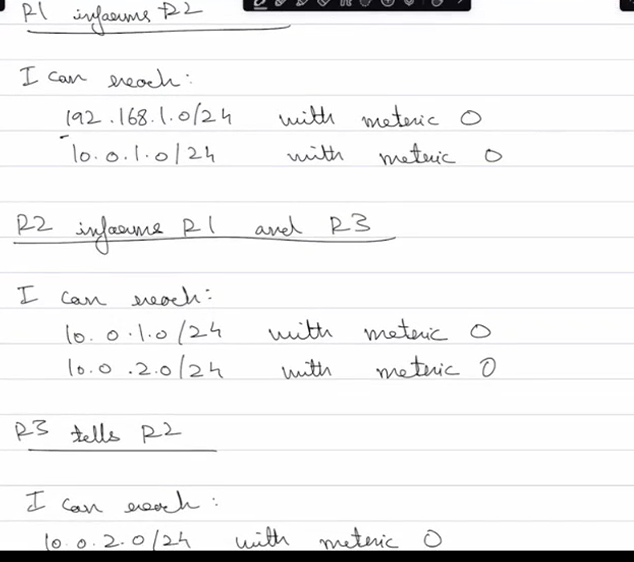 R1 informs R2
I can reach:
192.168.1.0/24 with metric 0
10.0.1.0/24 with metric 0
R2 informs R1 and R3
I can reach:
10.0.1.0/24 with metric 0
10.0.2.0/24 with metric 0
R3 tells R2
I can reach:
10.0.2.0/24 with metric 0